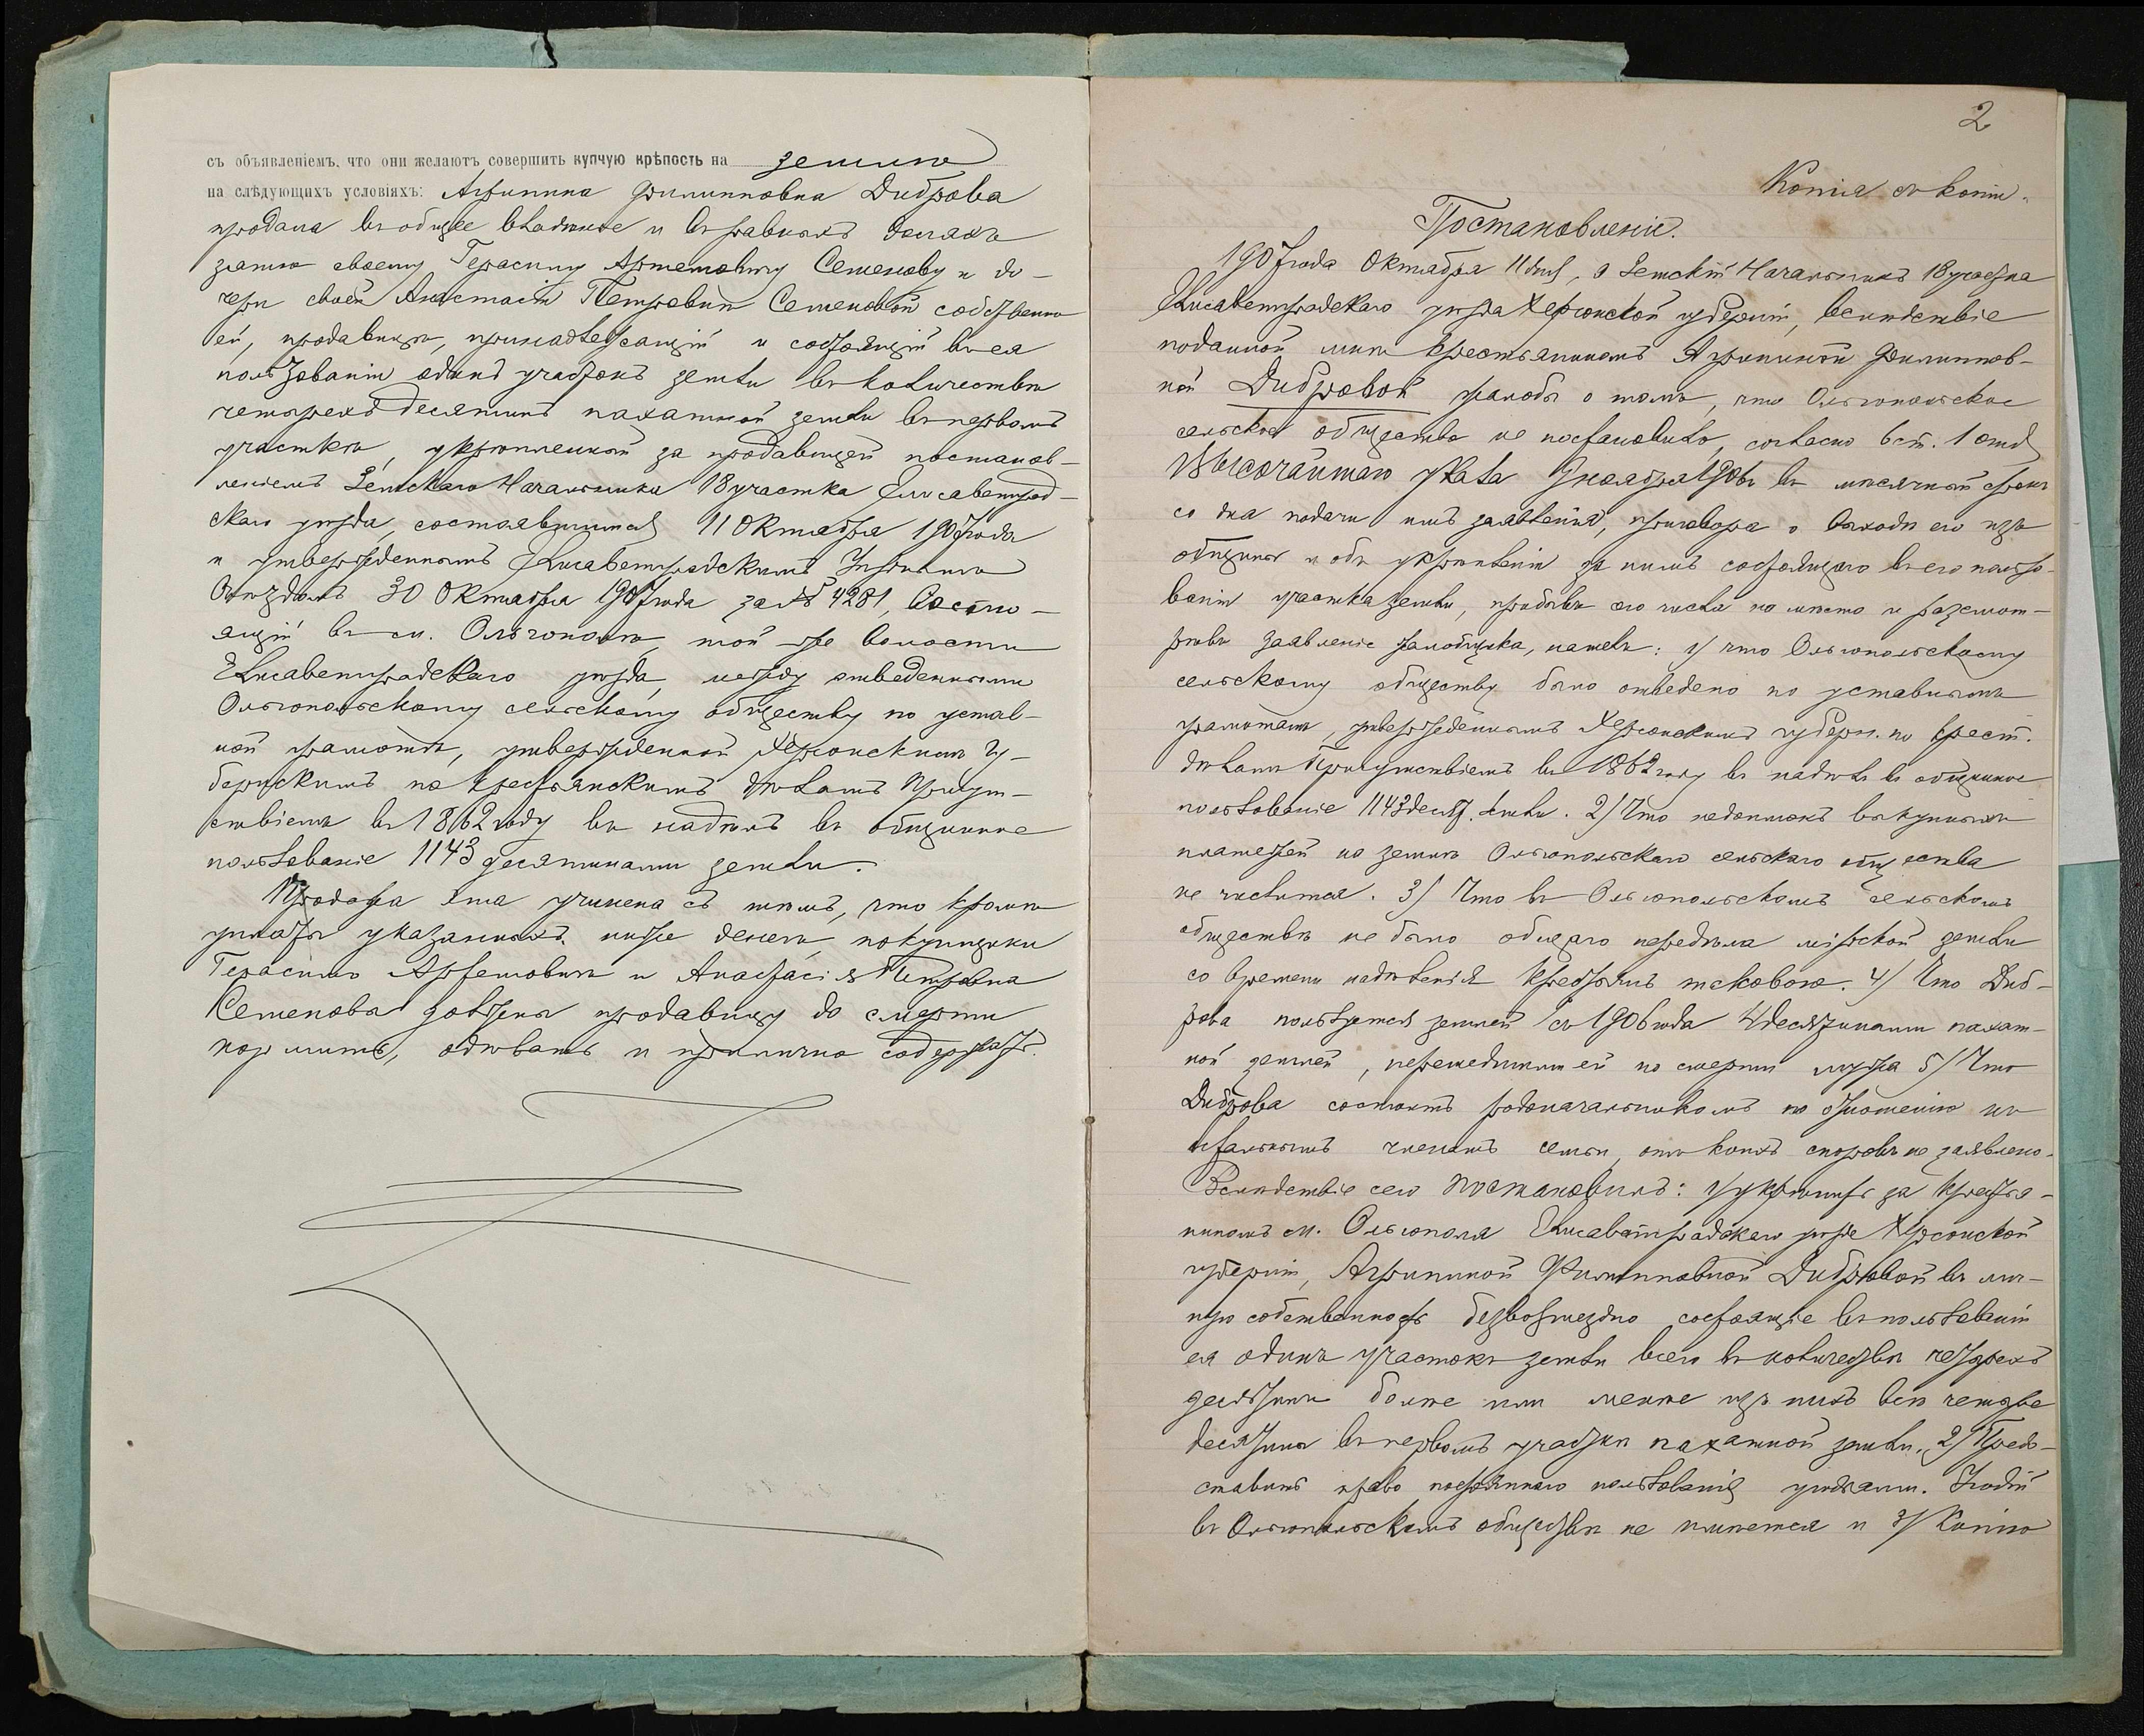 съ объявленіемъ, что они желаютъ совершить купчую крѣпость на землю
на слѣдующихъ условіяхъ: Агрипина Филипповна Диброва
продала въ общее владѣніе и въ равныхъ доляхъ
зятю своему Герасиму Артемовичу Семенову и до-
чери своей Анастасіи Петровнѣ Семеновой собственно
ей, продавицѣ, принадлежащій и состоящій въ ея
пользованіи одинъ участокъ земли въ количествѣ
четырехъ десятинъ пахатной земли въ первомъ
участкѣ, укрѣпленной за продавицей постанов-
леніемъ Земскаго Начальника 18 участка Елисаветград-
скаго уѣзда, состоявшимся 11 Октября 1907 года
и утвержденнымъ Елисаветградскимъ Уѣзднымъ
Съѣздомъ 30 Октября 1907 года за № 4281, Состо-
ящій въ м. Ольгополѣ, той же волости
Елисаветградскаго уѣзда, между отведенными
Ольгопольскому сельскому обществу по устав-
ной грамотѣ, утвержденной Херсонскимъ Гу-
бернскимъ по крестьянскимъ дѣламъ Присут-
ствіемъ въ 1862 году въ надѣлъ въ общинное
пользованіе 1143 десятинами земли.
Продажа эта учинена съ тѣмъ, что кромѣ
уплаты указанныхъ ниже денегъ покупщики
Герасимъ Артемовичъ и Анастасія Петровна
Семеновы должны продавицу до смерти
кормить, одѣвать и прилично содержать.
2
Копія съ копіи.
Постановленіе.
1907 года Октября 11 дня, я Земскій Начальникъ 18 участка
Елисаветградскаго уѣзда Херсонской губерніи, вслѣдствіе
поданной мнѣ крестьяниномъ Агрипиной Филиппов-
ной Дибровой жалобы о томъ, что Ольгопольское
сельское общество не постановило, согласно 6 ст. 1 отд
Высочайшаго указа 9 ноября 1906 въ мѣсячный срокъ
со дня подачи имъ заявленія, приговора о выходѣ его изъ
общины и объ укрѣпленіи за нимъ состоящаго въ его пользо-
ваніи участка земли, прибывъ сего числа на мѣсто и разсмот-
рѣвъ заявленіе жалобщика, нашелъ: 1/ что Ольгопольскому
сельскому обществу было отведено по уставнымъ
грамотамъ, утвержденнымъ Херсонскимъ губерн. по крест.
дѣламъ Присутствіемъ въ 1862 году въ надѣлъ въ общинное
пользованіе 1143 десят. земли. 2/ Что недоимокъ выкупныхъ
платежей на землѣ Ольгопольскаго сельскаго общества
не числится. 3/ Что въ Ольгопольскомъ сельскомъ
обществѣ не было общаго передѣла мірской земли
со времени надѣленія крестьянъ таковою. 4/ Что Диб-
рова пользуется землей съ 1906 года 4 десятинами пахат-
ной землей, перешедшими ей по смерти мужа 5/ Что
Диброва состоитъ родоначальникомъ по отношенію къ
остальнымъ членамъ семьи, отъ коихъ споровъ не заявлено.
Вслѣдствіе сего постановилъ: 1/ укрѣпить за крестья-
ниномъ м. Ольгополя Елисаветградскаго уѣзда Херсонской
губерніи, Агрипиной Филипповной Дибровой въ лич-
ную собственность безвозмездно состоящіе въ пользованіи
ея одинъ участокъ земли всего въ количествѣ четырехъ
десятинъ болѣе или менѣе изъ нихъ всѣ четыре
десятины въ первомъ участкѣ пахатной земли. 2/ Предо-
ставить право постояннаго пользованія угодьями. Угодій
въ Ольгопольскомъ обществѣ не имѣется и 3/ Копію